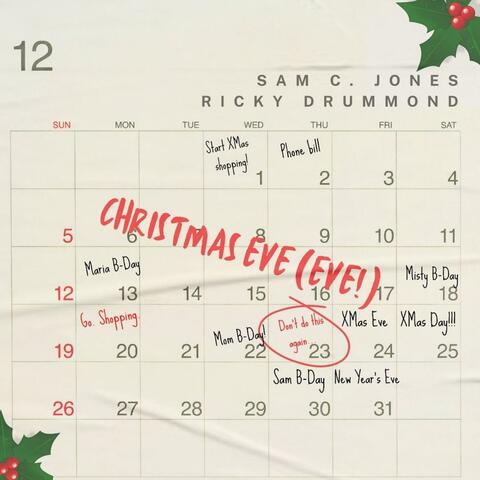 12
SAM C. JONES
RICKY DRUMMOND
SUN MON TUE WED THU FRI SAT
Start XMas
shopping!
Phone bill
1 2 3 4
CHRISTMAS EVE (EVE!)
5 6 7 8 9 10 11
Maria B-Day
Misty B-Day
12 13 14 15 16 17 18
Go. Shopping.
Mom B-Day!
Don't do this
again...
XMas Eve
XMas Day!!!
19 20 21 22 23 24 25
Sam B-Day
New Year's Eve
26 27 28 29 30 31